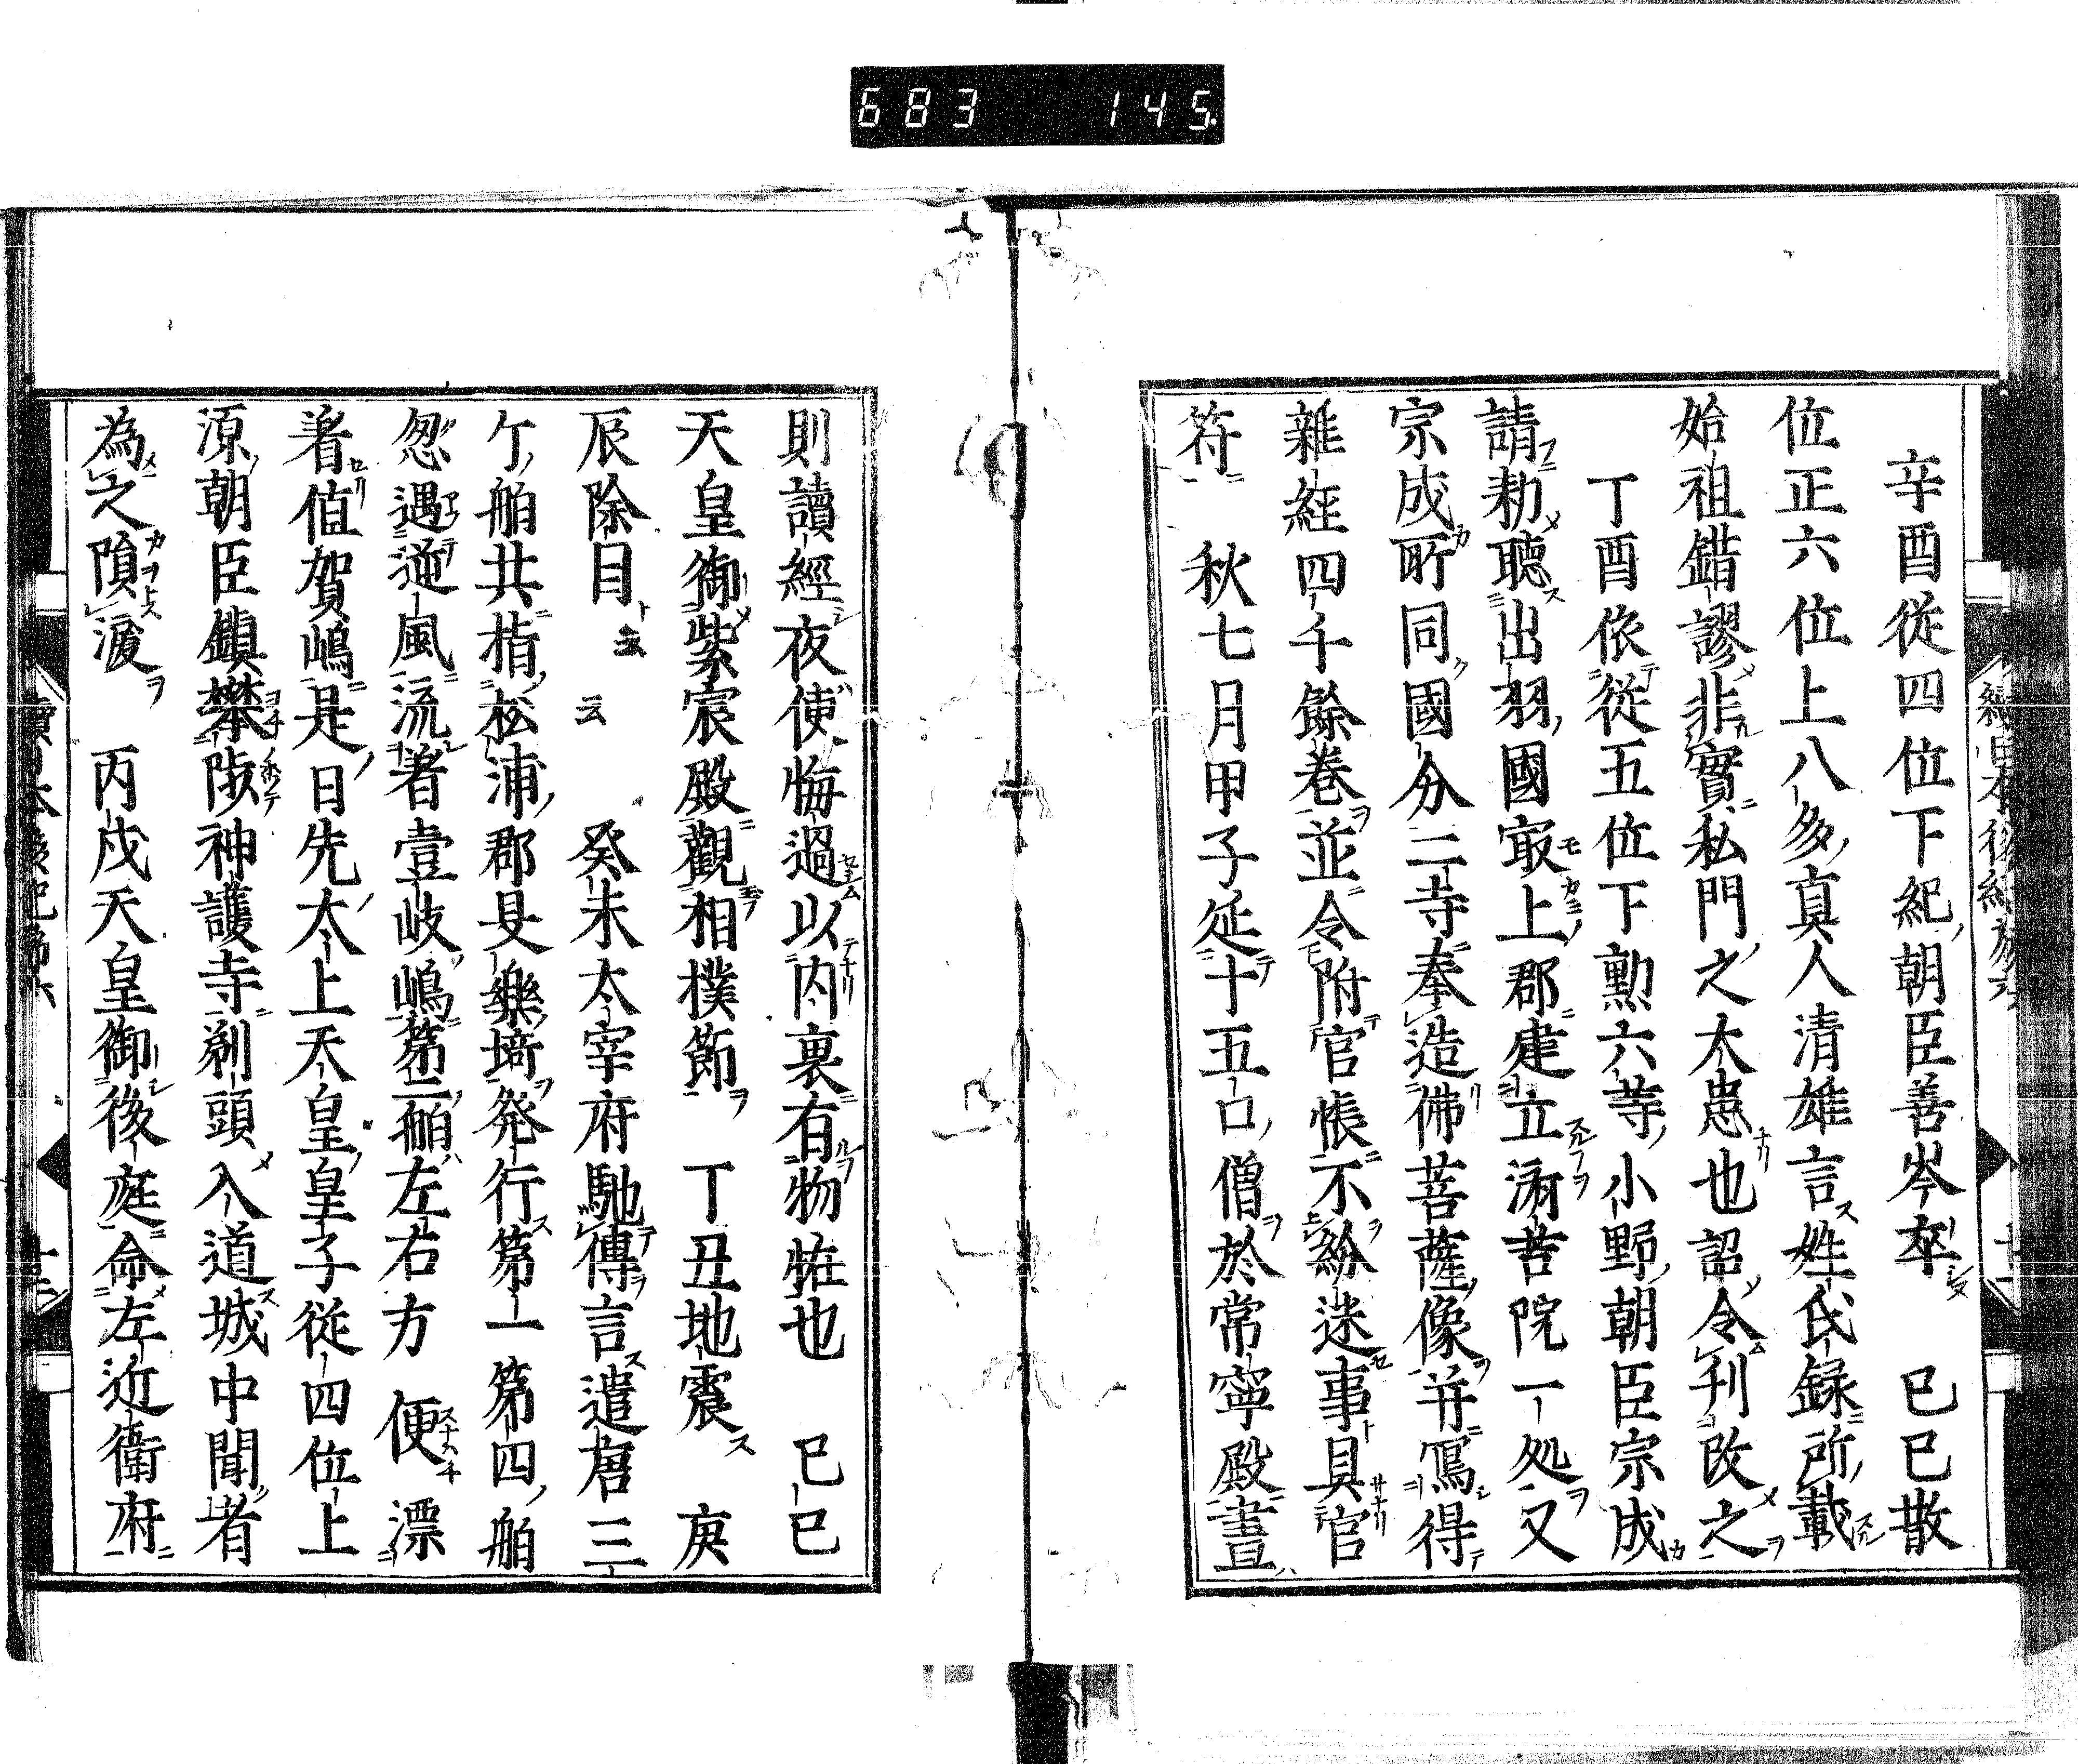 683 145.
辛酉從四位下紀朝臣善岑卒 己巳散
位正六位上八多真人清雄言姓氏録所載
始祖錯謬非實私門之大患也詔令刊改之
丁酉依從五位下勲六等小野朝臣宗成
請勑聴出羽國㝡上郡建立済苦院一処又
宗成所同國分二寺奉造佛菩薩像并寫得
雜経四千餘巻並令附官帳不紛迷事具官
符 秋七月甲子延十五口僧於常寧殿晝
則讀經夜使悔過以内裏有物恠也 己巳
天皇御紫宸殿觀相撲節 丁丑地震 庚
辰除目云云 癸未太宰府馳傳言遣唐三
ケ舶共指松浦郡旻樂埼発行第一第四舶
忽遇逆風流著壹岐嶋第二舶左右方便漂
著值賀嶋是日先太上天皇皇子從四位上
源朝臣鎮攀陟神護寺剃頭入道城中聞者
為之隕涙 丙戌天皇御後庭命左近衛府